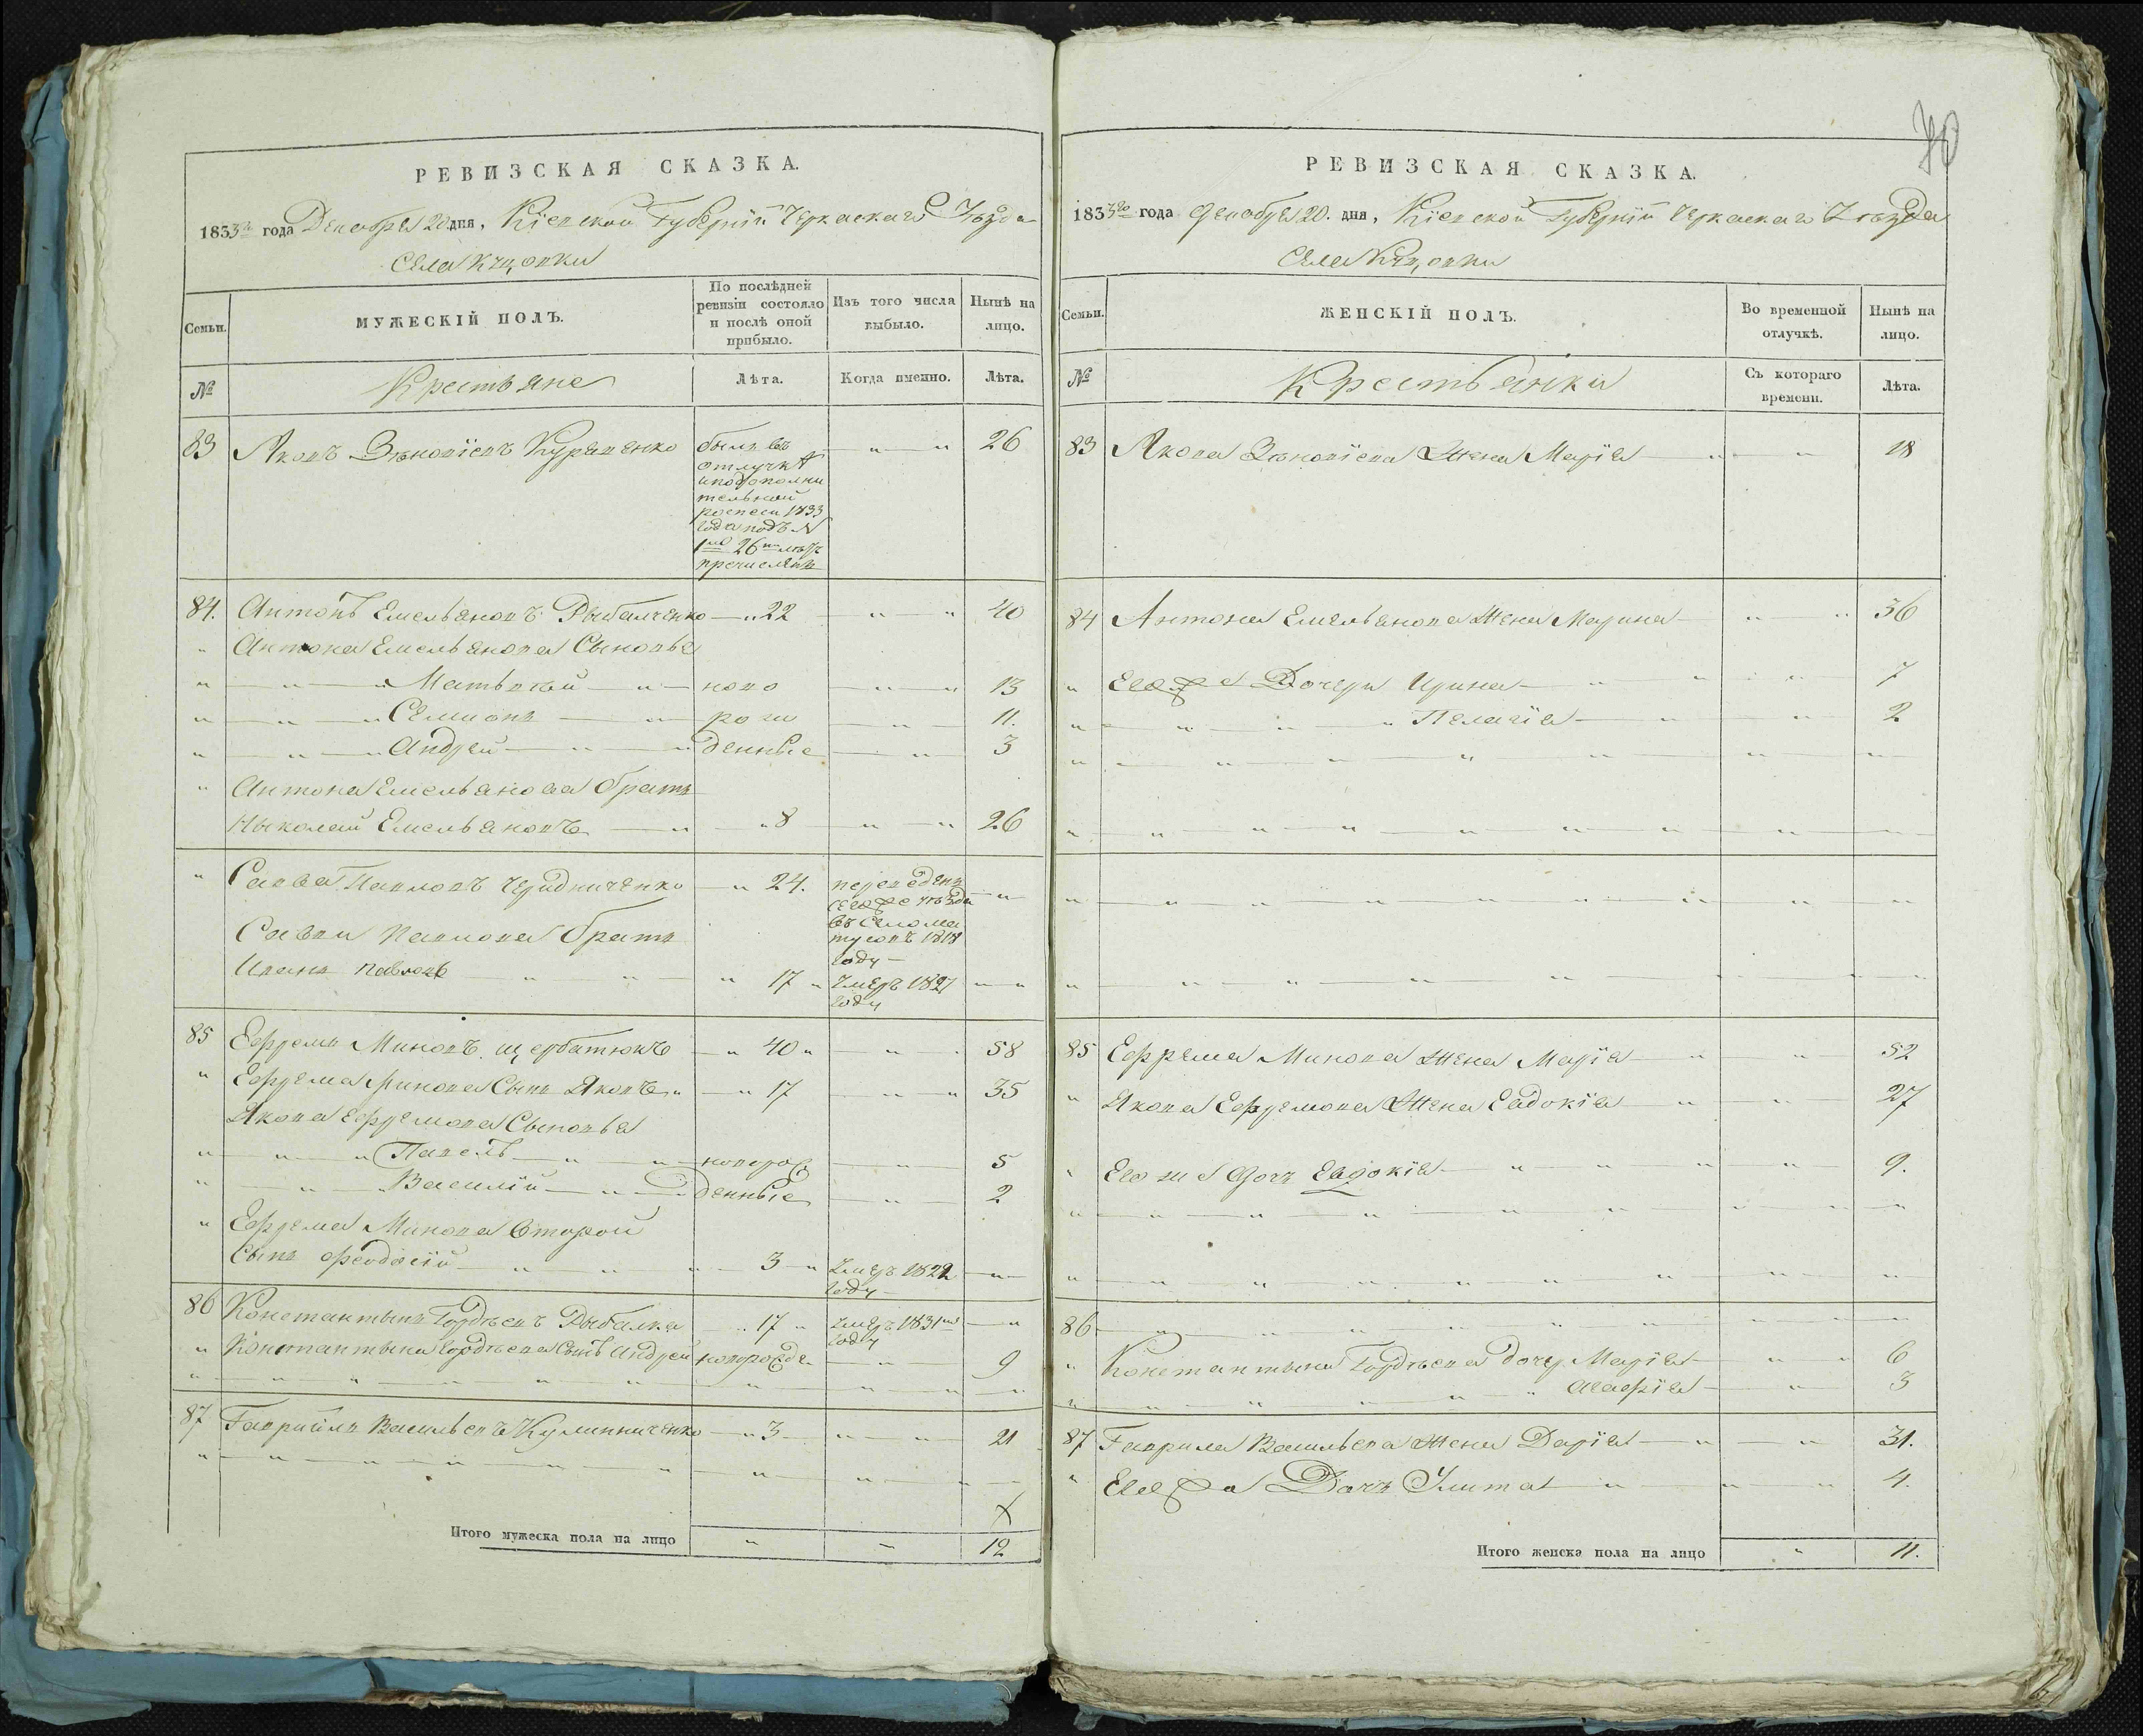 70
РЕВИЗСКАЯ СКАЗКА.
1833го года Декабря 20 дня, Кіевской Губерніи Черкаскаго Уѣзда
Села
Семьи.
МУЖЕСКІЙ ПОЛЪ.
По послѣдней ревизіи состояло и послѣ оной прибыло.
Изъ того числа выбыло.
Нынѣ на лицо.
№
Крестьяне
Лѣта.
Когда именно.
Лѣта.
83 Яковъ Зѣновіевъ 26
былъ въ
отлучкѣ
иподополни
тельной
росписи 1833
года подъ N
1мъ 26 лѣтъ
причисленъ
84. Антонъ Емельяновъ Рыбалченко 22 40
Антона Емельянова Сыновья
Матвѣй ново 13
Семионъ рож 11.
Андрей денные 3
Антона Емельянова братъ
Ныколай Емельяновъ 8 26
Савва Павловъ Чередниченко 24. переведенъ
сегоже уѣзда
въ Село Ма
тусовъ 1818
году
Саввы Павлова братъ
Иванъ Павловъ 17 Умеръ 1827
году
85 Ефремъ Миновъ щербатюкъ 40 58
Ефрема Минова Сынъ Яковъ 17 35
Якова Ефремова Сыновья
Павелъ новорож 5
Василій денные 2
Ефрема Минова второй
Сынъ Феодосій 3 Умеръ 1822
году
86 Константынъ Гордѣевъ Рыбалка 17 Умеръ 1831го
году
Константына Гордѣева Сынъ Андрей новорожде 9
87 Гавриилъ Васильевъ Кулинниченко 3 21
Х
Итого мужеска пола на лицо 12
РЕВИЗСКАЯ СКАЗКА.
1833го года Декабря 20. дня, Кіевской Губерніи Черкаскаго Уѣзда
Села
Семьи.
ЖЕНСКІЙ ПОЛЪ.
Во временной отлучкѣ.
Нынѣ на лицо.
№
Крестьянки
Съ котораго времени.
Лѣта.
83 Якова Зѣновіева Жена Марія 18
84 Антона Емельянова Жена Марина 36
Егоже Дочери Ирина 7
Пелагія 2
85 Ефрема Минова Жена Марія 52
Якова Ефремова Жена Евдокія 27
Его же Дочь Евдокія 9.
86
Константына Гордѣева дочер. Марія 6
Агафія 3
87 Гаврила Васильева Жена Дарія 31.
Егоже Дочь Улита 4.
Итого женска пола на лицо 11.